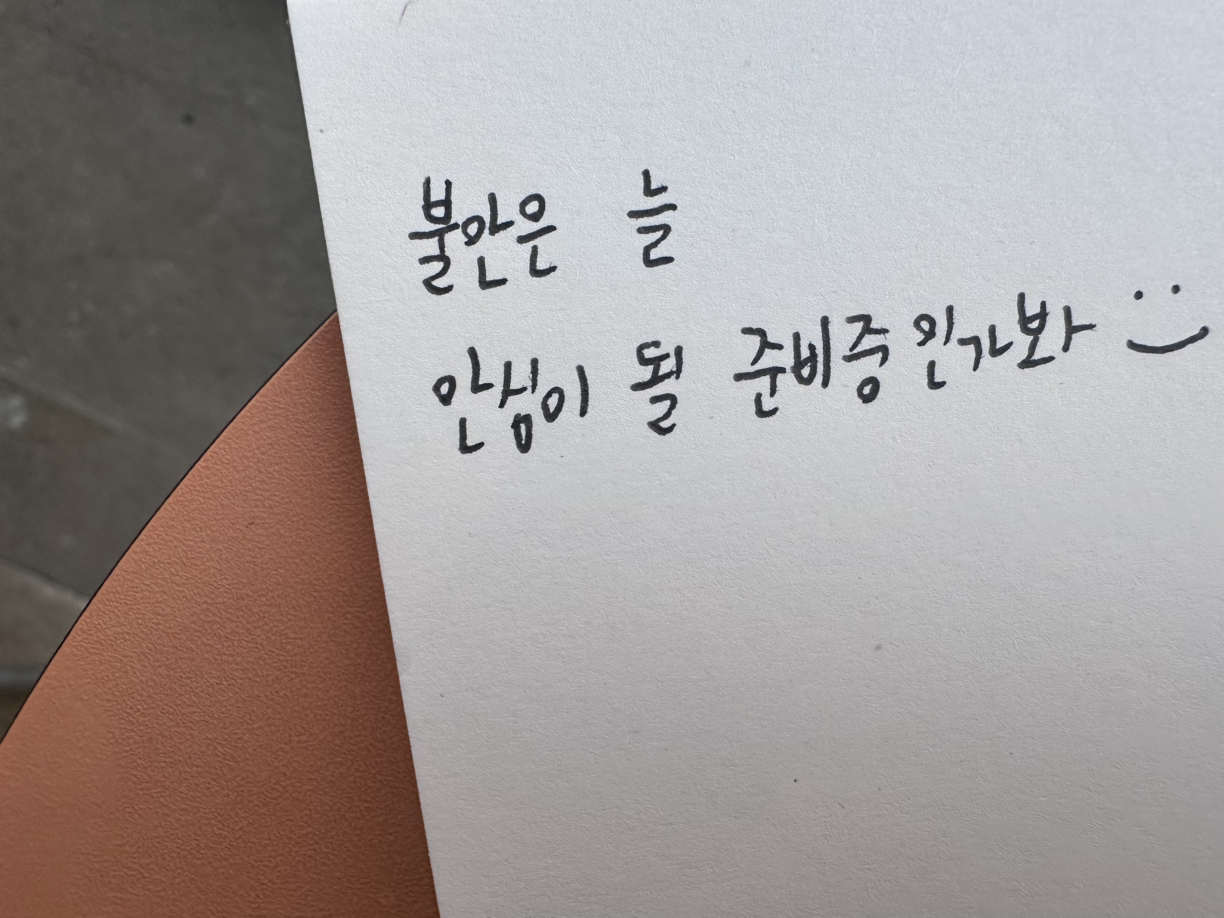 불안은 늘
안심이 될 준비중인가봐 :)